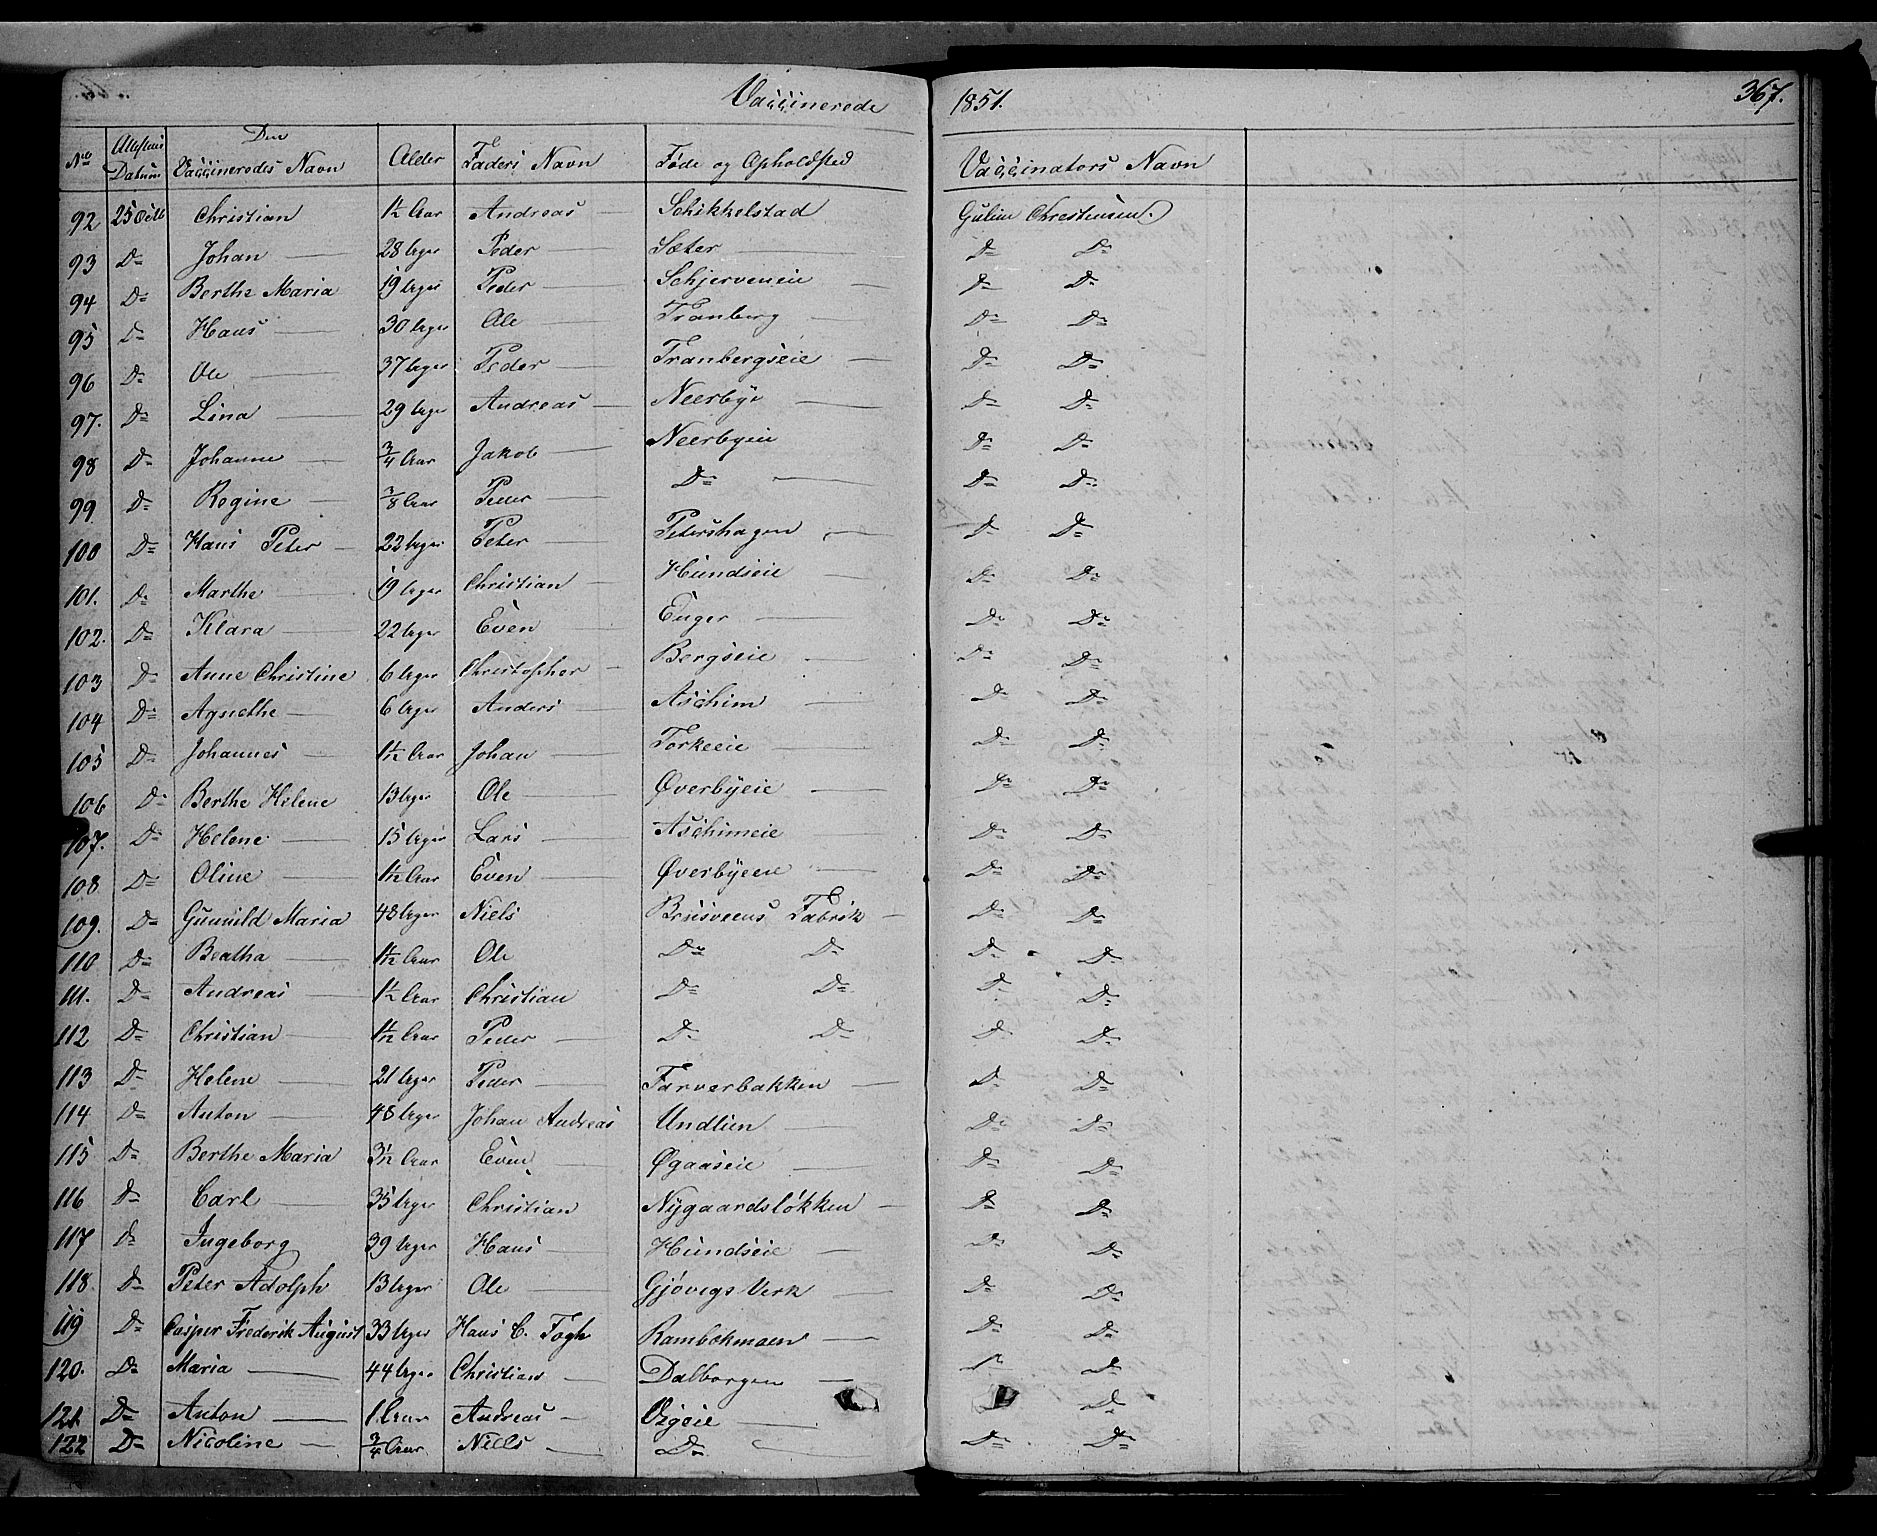 Vaccinerede 1851. 367.
No Attestens Datum Den Vaccineredes Navn Alder Faders Navn Føde og Opholdsted Vaccinators Navn
92 25 Octb Christian 1½ Aar Andreas Schikkelstad Gulim Christensen.
93 Do Johan 28 Uger Peder Sæter Do Do
94 Do Berthe Maria 19 Uger Peder Schjerveneie Do Do
95 Do Hans 30 Uger Ole Tranberg Do Do
96 Do Ole 37 Uger Peder Tranbergseie Do Do
97. Do Lina 29 Uger Andreas Neerbye Do Do
98 Do Johanne ¾ Aar Jakob Neerbyeie Do Do
99 Do Regine Aar Peder Do Do Do
100 Do Hans Peter 22 Uger Peter Petershagen Do Do
101. Do Marthe 19 Uger Christian Hundseie Do Do
102. Do Klara 22 Uger Even Enger Do Do
103 Do Anne Christine 6 Uger Christopher Bergseie Do Do
104 Do Agnethe 6 Uger Anders Aschim Do Do
105 Do Johannes 1½ Aar Johan Torkeeie Do Do
106 Do Berthe Helene 13 Uger Ole Øverbyeie Do Do
107. Do Helene 15 Uger Lars Aschimeie Do Do
108 Do Oline 1½ Aar Even Øverbyeie Do Do
109. Do Gunnild Maria 48 Uger Niels Brusveens Fabrik Do Do
110 Do Beatha 1½ Aar Ole Do Do Do Do
111. Do Andreas 1½ Aar Christian Do Do Do Do
112 Do Christian 1½ Aar Peder Do Do Do Do
113 Do Helene 21 Uger Peder Farverbakken Do Do
114 Do Anton 48 Uger Johan Andreas Undlien Do Do
115 Do Berthe Maria 3½ Aar Even Øgaaseie Do Do
116 Do Carl 35 Uger Christian Nygaardsløkken Do Do
117 Do Ingeborg 39 Uger Hans Hundseie Do Do
118. Do Peter Adolph 13 Uger Ole Gjøvigs Verk Do Do
119 Do Casper Frederik August 33 Uger Hans C. Fogh Rambekmoen Do Do
120. Do Maria 44 Uger Christian Dalborgen Do Do
121. Do Anton 1 Aar Andreas Do
122 Do Nicoline ¾ Aar Niels Do Do Do